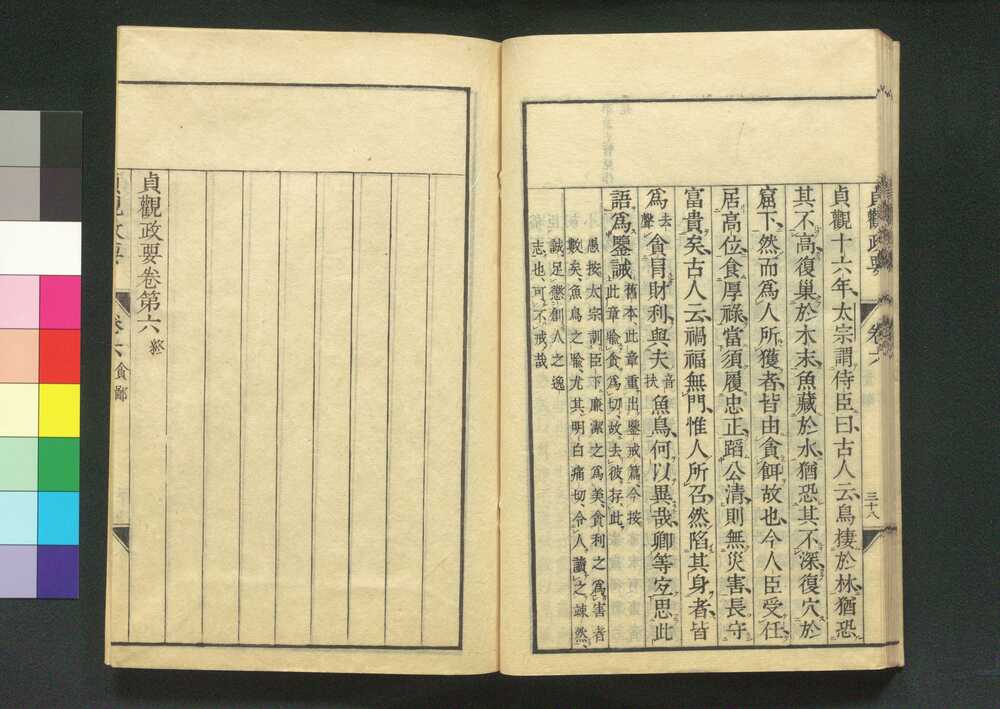 貞觀政要
卷六
三十八
貞觀十六年太宗謂侍臣曰古人云鳥棲於林猶恐
其不高復巢於木末魚藏於水猶恐其不深復穴於
窟下然而爲人所獲者皆由貪餌故也今人臣受任
居高位食厚祿當須履忠正蹈公清則無災害長守
富貴矣古人云禍福無門惟人所召然陷其身者皆
爲去聲貪冒財利與夫音扶魚鳥何以異哉卿等宜思此
語爲鑒誡舊本此章重出鑒戒篇今按
此章喩貪爲切故去彼存此
愚按太宗訓臣下廉潔之爲美貪利之爲害者
數矣魚鳥之喩尤其明白痛切令人讀之竦然
誠足懲創人之逸
志也可不戒哉
貞觀政要卷第六 終
貞觀政要
卷六
貪鄙